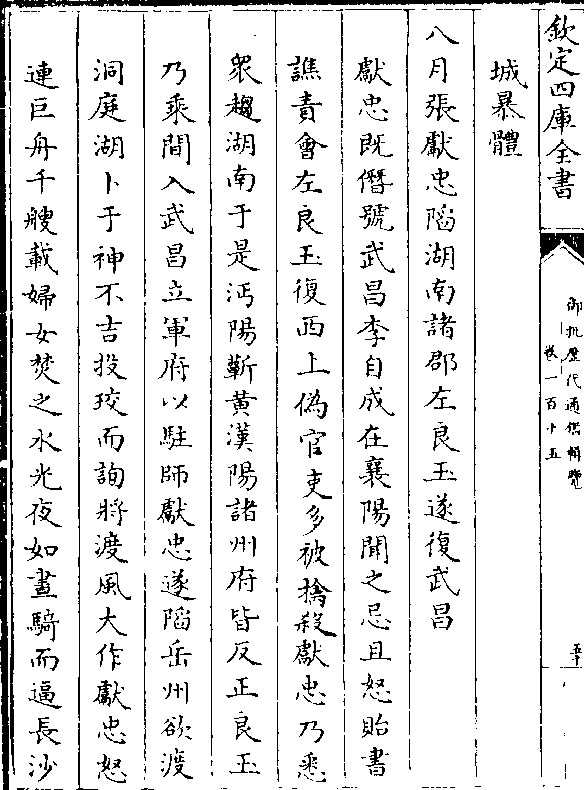 欽定四庫全書
御批歷代通鑑輯覽
卷一百十五
城暴體
八月張獻忠陷湖南諸郡左良玉遂復武昌
獻忠既僭號武昌李自成在襄陽聞之忌且怒貽書
譙責會左良玉復西上偽官吏多被擒殺獻忠乃悉
衆趨湖南于是沔陽蘄黄漢陽諸州府皆反正良玉
乃乘間入武昌立軍府以駐師獻忠遂陷岳州欲渡
洞庭湖卜于神不吉投珓而詢將渡風大作獻忠怒
連巨舟千艘載婦女焚之水光夜如晝騎而逼長沙